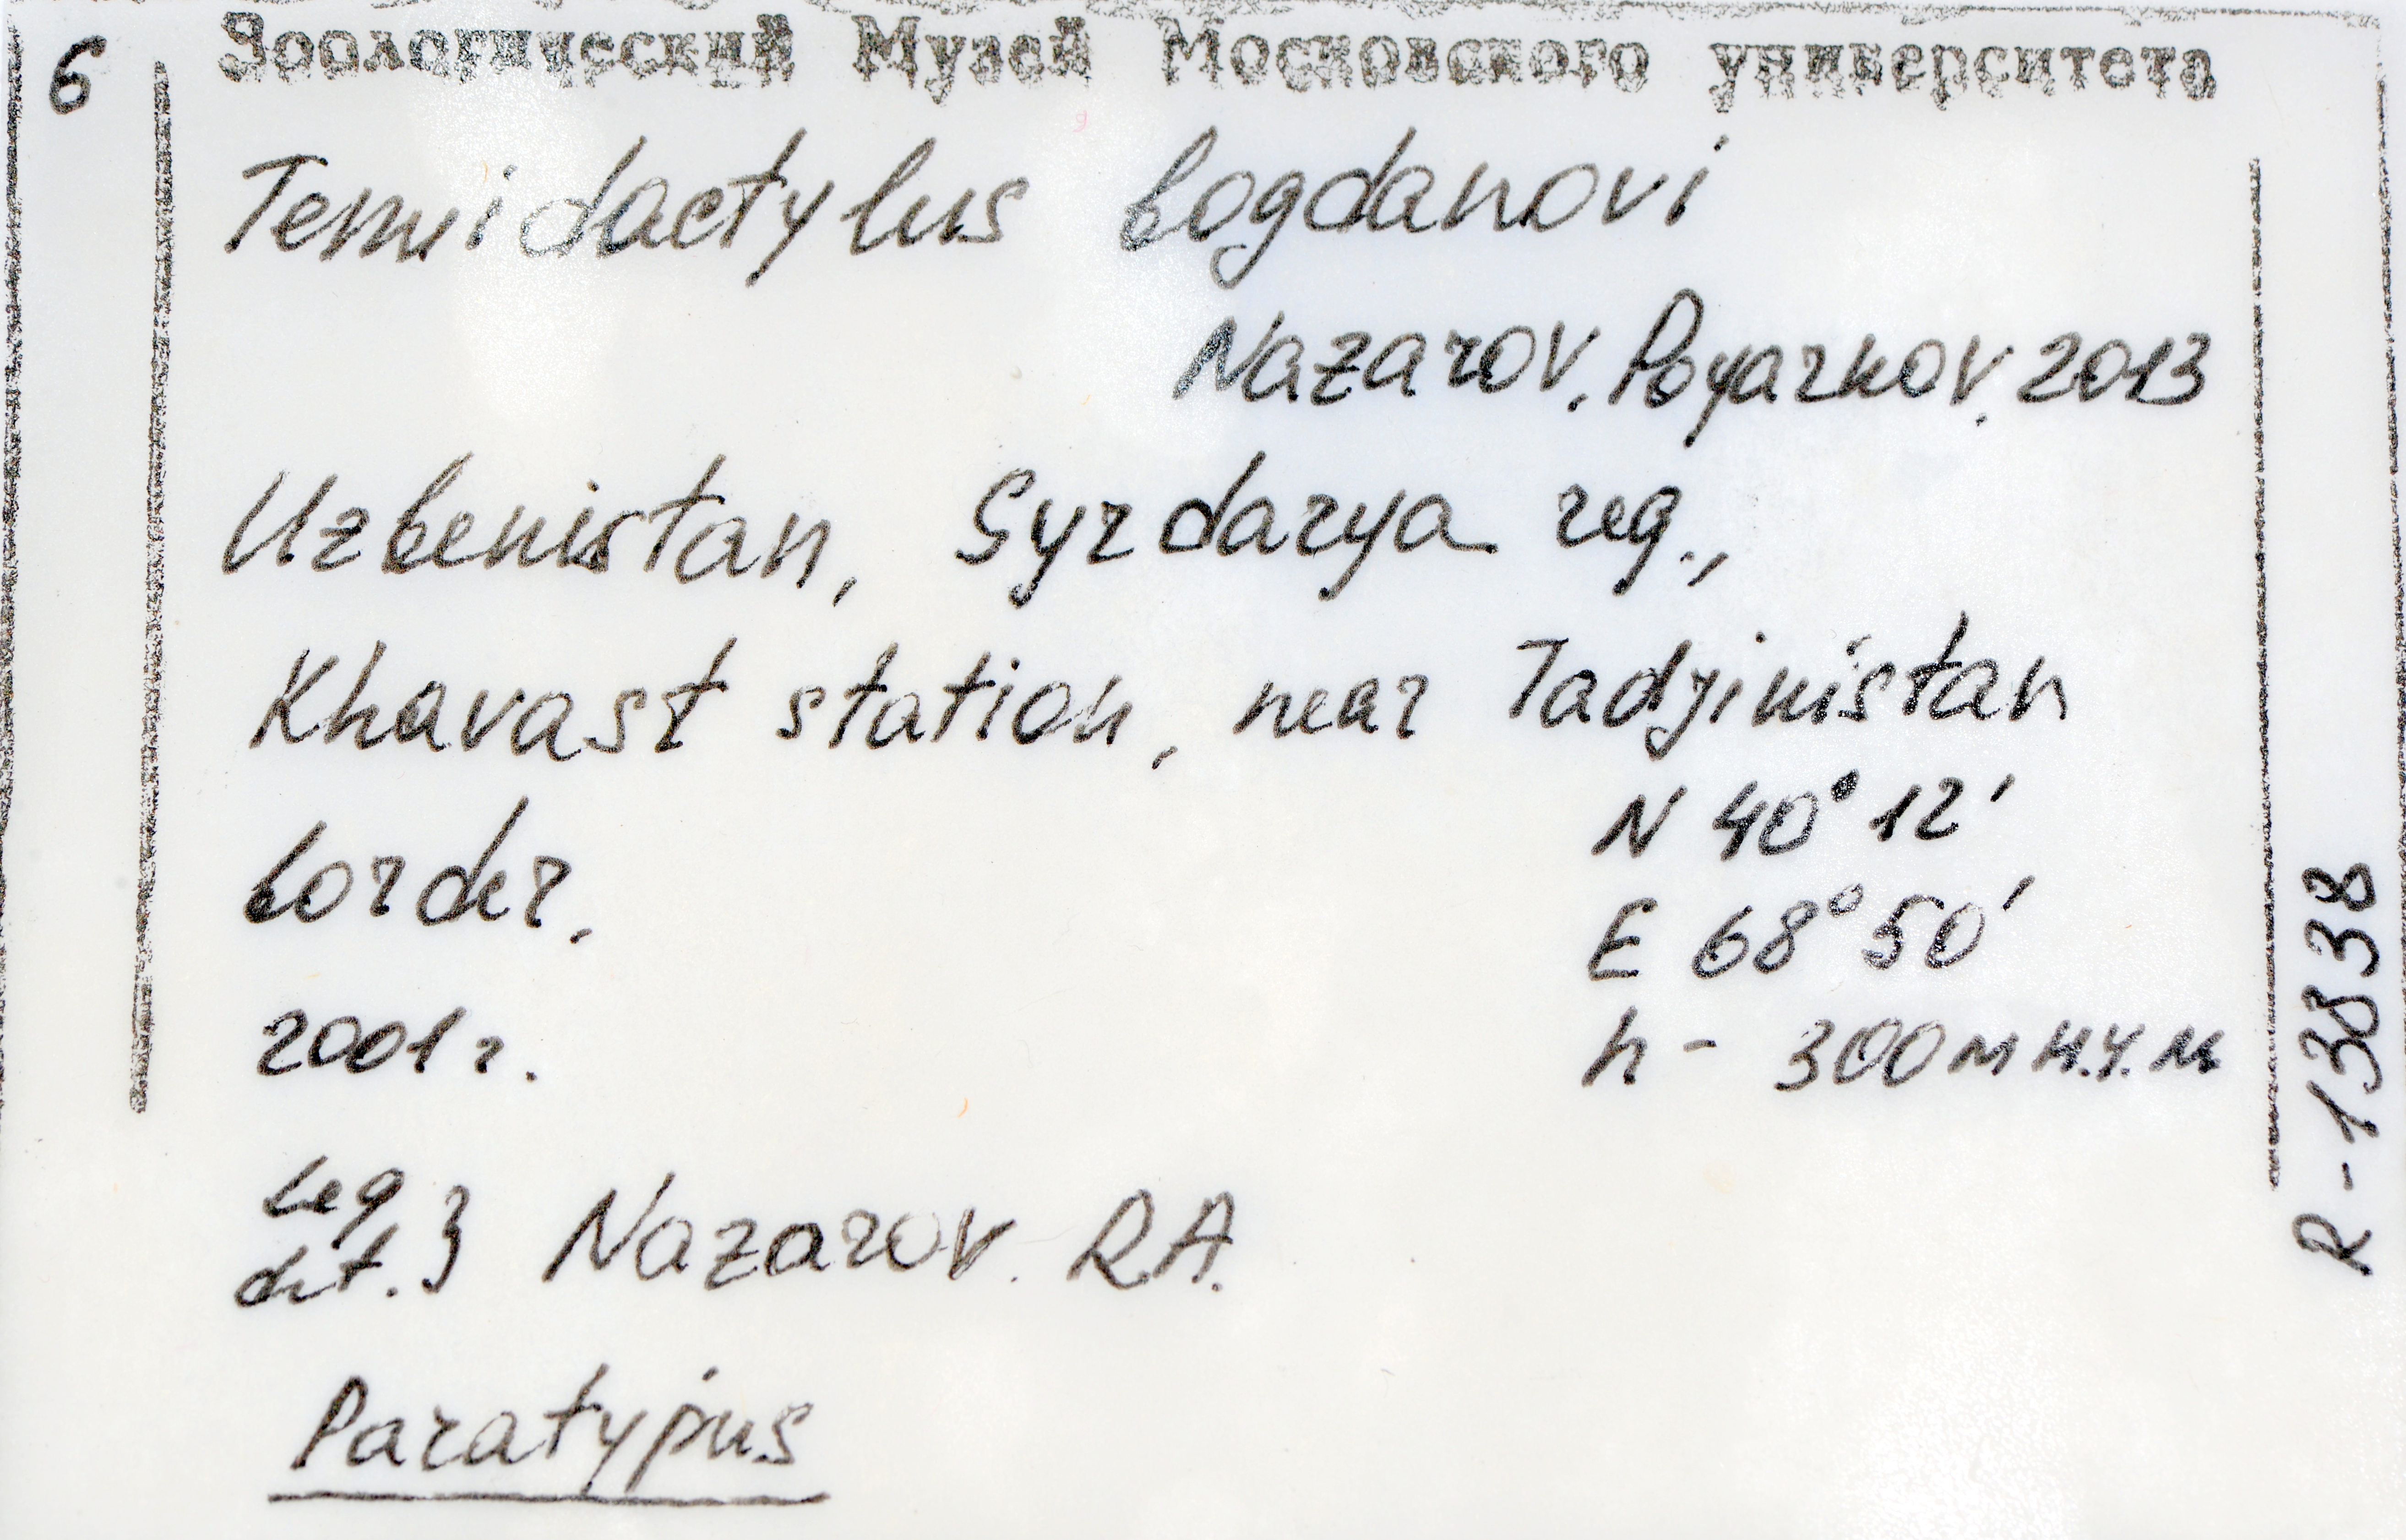 6
Зоологический Музей Московского университета
Tenuidactylus bogdanovi
Nazarov, Poyarkov, 2013
Uzbekistan, Syrdarya reg.,
Khavast station, near Tadjikistan
border,
N 40° 12'
E 68° 50'
2001 г.
h - 300 м н.у.м
Leg
det. } Nazarov. R.A.
Paratypus
R-13838